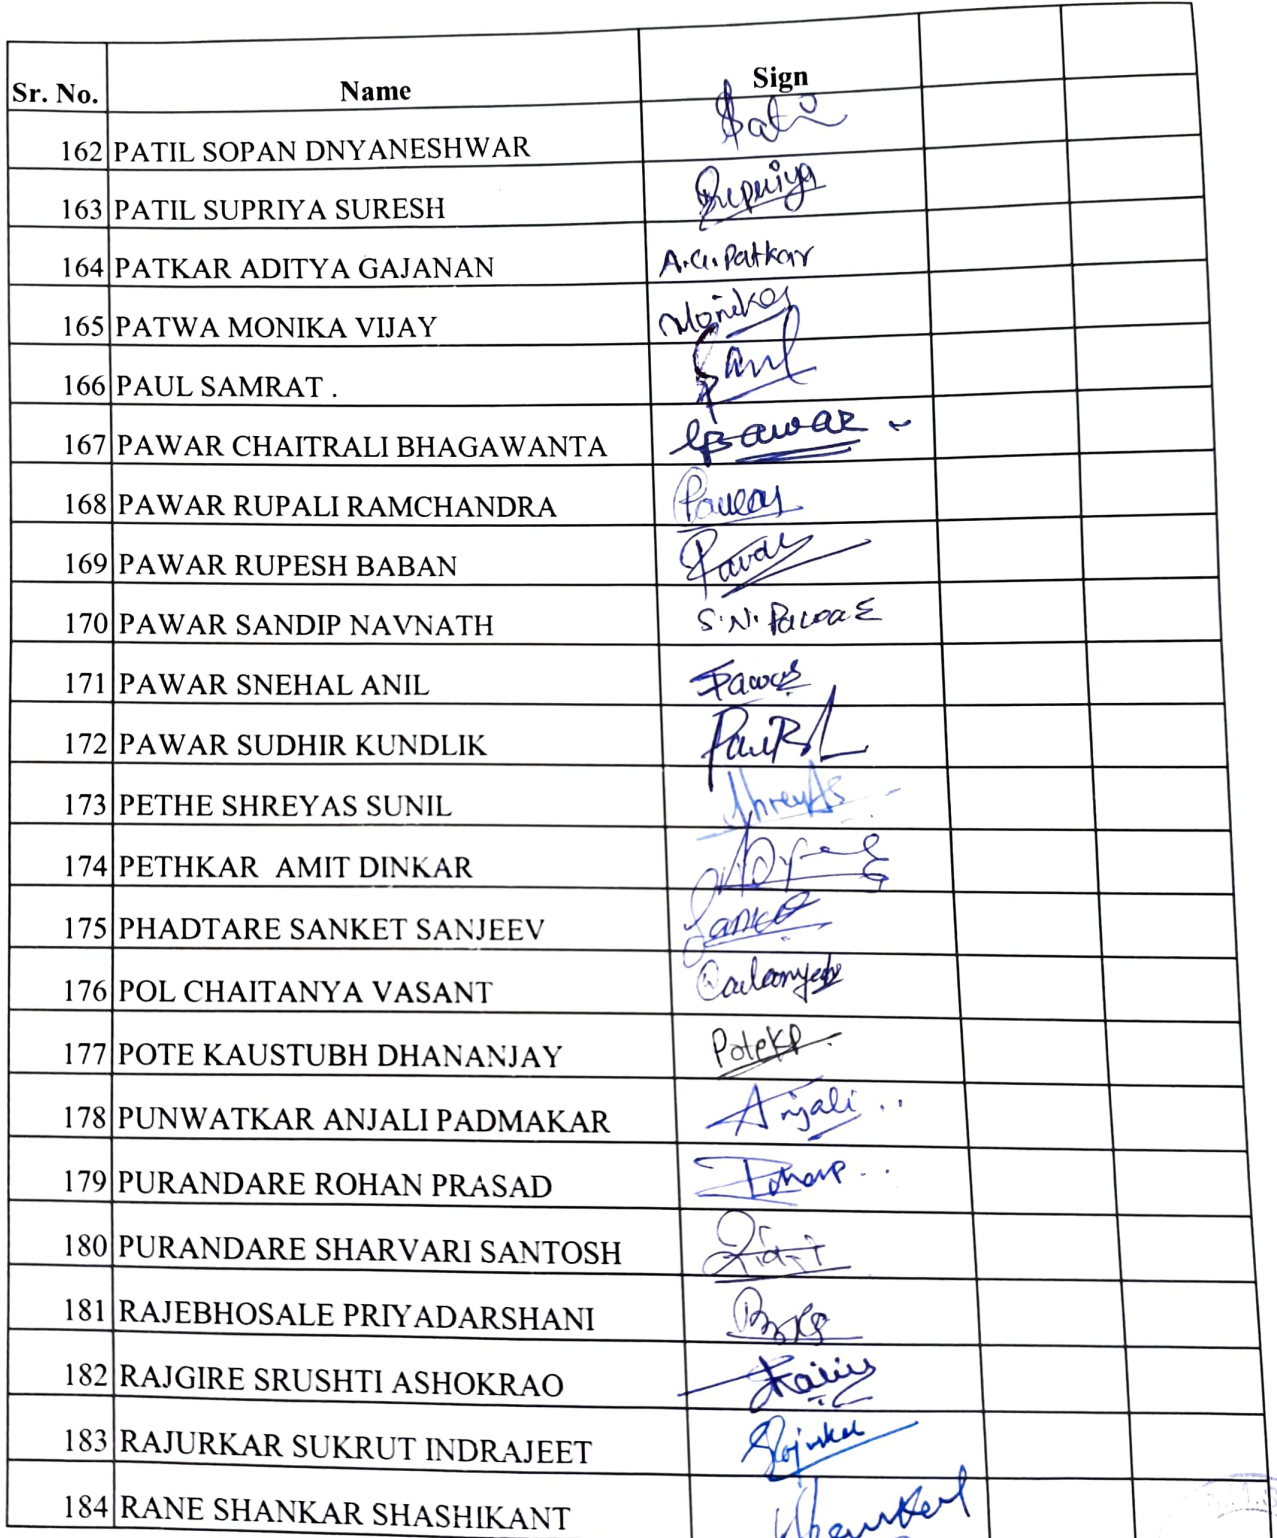 Sr. No. Name Sign
162 PATIL SOPAN DNYANESHWAR
163 PATIL SUPRIYA SURESH Supriya
164 PATKAR ADITYA GAJANAN A.G.Patkar
165 PATWA MONIKA VIJAY Monika
166 PAUL SAMRAT . Paul
167 PAWAR CHAITRALI BHAGAWANTA
168 PAWAR RUPALI RAMCHANDRA
169 PAWAR RUPESH BABAN
170 PAWAR SANDIP NAVNATH S.N. Pawar
171 PAWAR SNEHAL ANIL
172 PAWAR SUDHIR KUNDLIK
173 PETHE SHREYAS SUNIL Shreyas
174 PETHKAR AMIT DINKAR
175 PHADTARE SANKET SANJEEV Sanket
176 POL CHAITANYA VASANT
177 POTE KAUSTUBH DHANANJAY PoteKP.
178 PUNWATKAR ANJALI PADMAKAR Anjali ..
179 PURANDARE ROHAN PRASAD
180 PURANDARE SHARVARI SANTOSH
181 RAJEBHOSALE PRIYADARSHANI
182 RAJGIRE SRUSHTI ASHOKRAO
183 RAJURKAR SUKRUT INDRAJEET
184 RANE SHANKAR SHASHIKANT